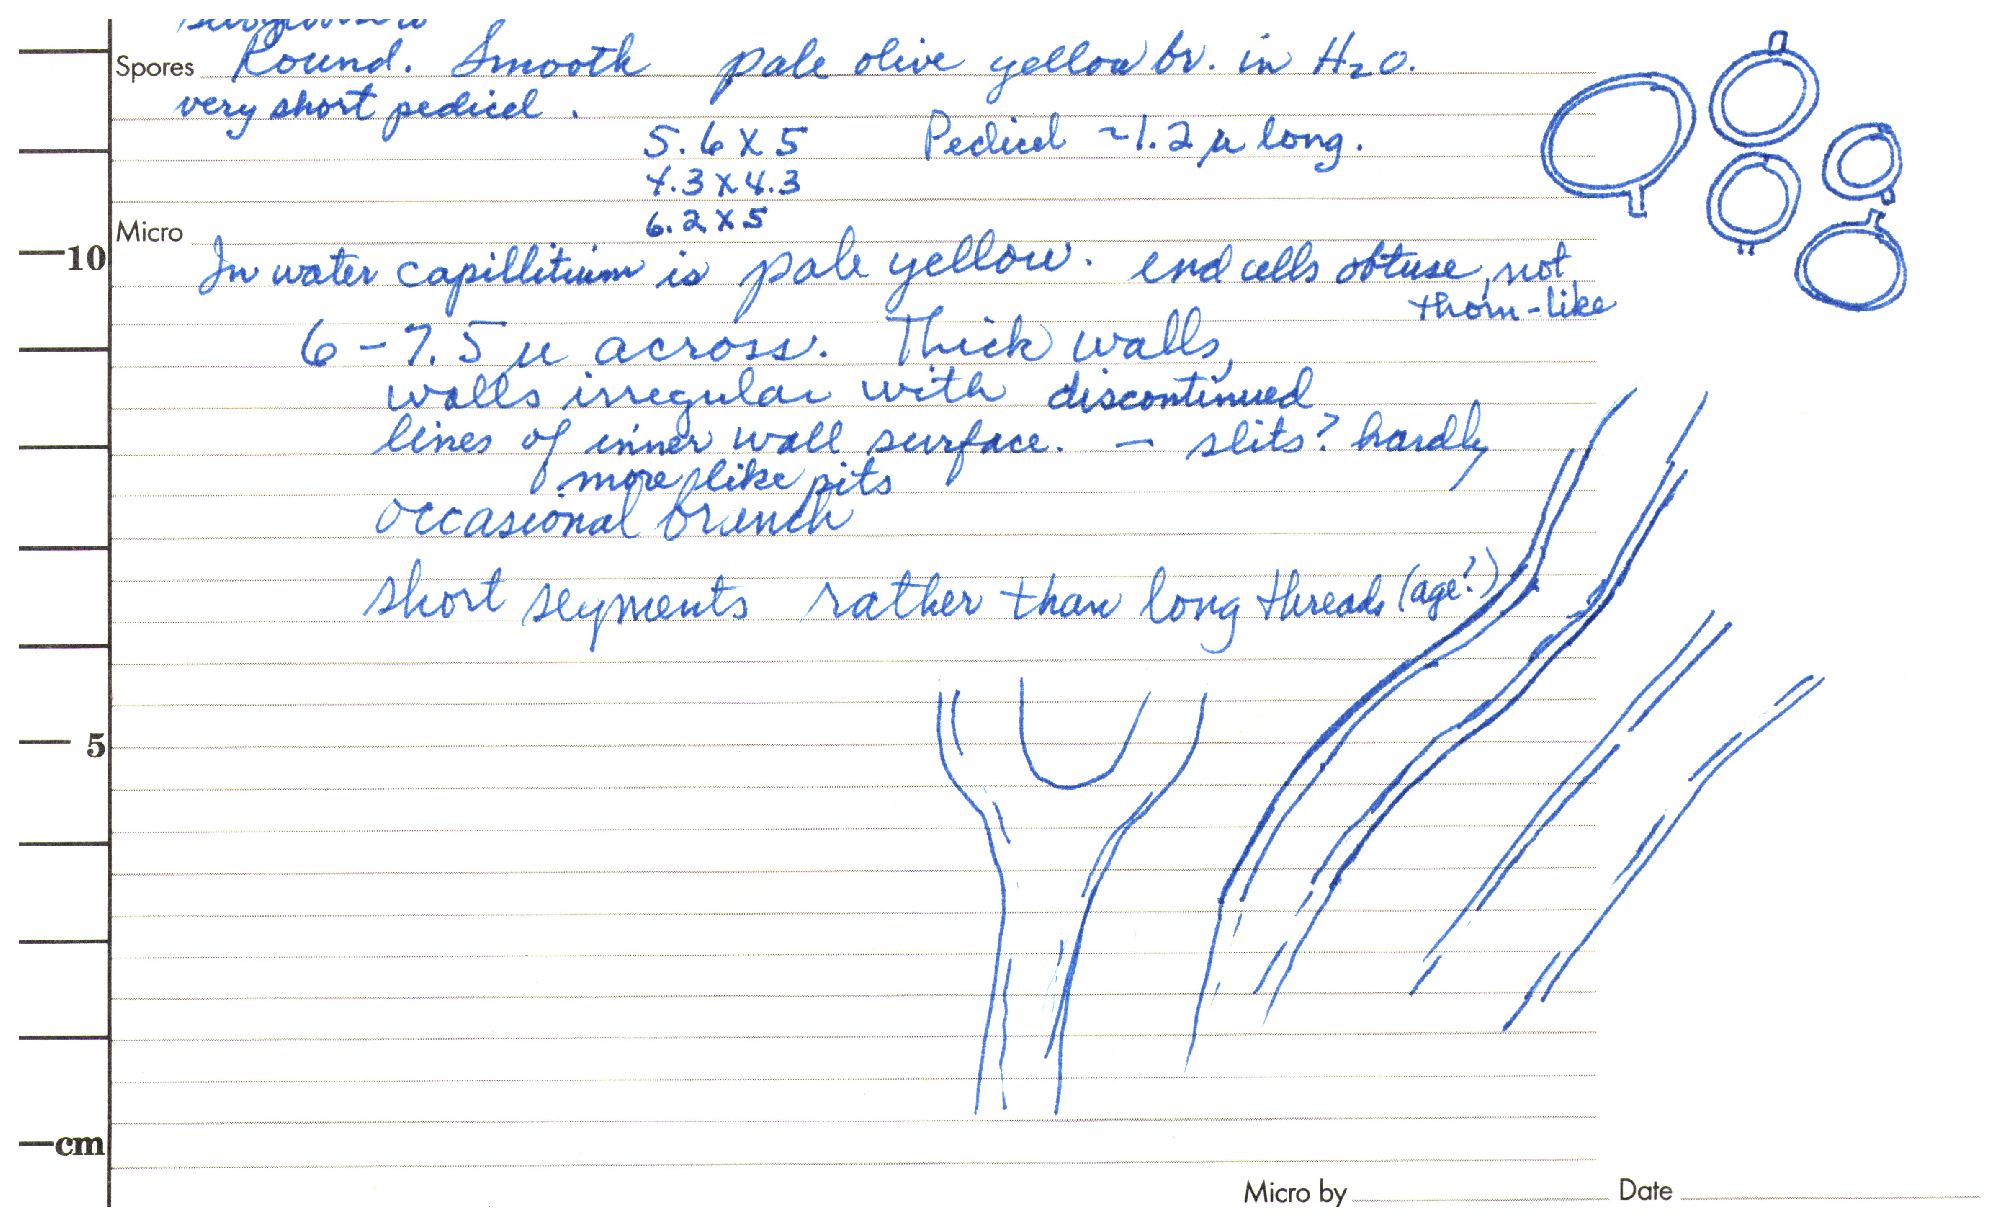 Spores Round. Smooth pale olive yellow br. in H2O.
very short pedicel.
5.6 X 5 Pedicel ~1.2 µ long.
4.3 X 4.3
6.2 X 5
10
Micro
In water capillitium is pale yellow. end cells obtuse, not
thorn-like
6-7.5 µ across. Thick walls,
walls irregular with discontinued
lines of inner wall surface. — slits? hardly
more like pits
occasional branch
short segments rather than long threads (age?)
5
cm
Micro by Date